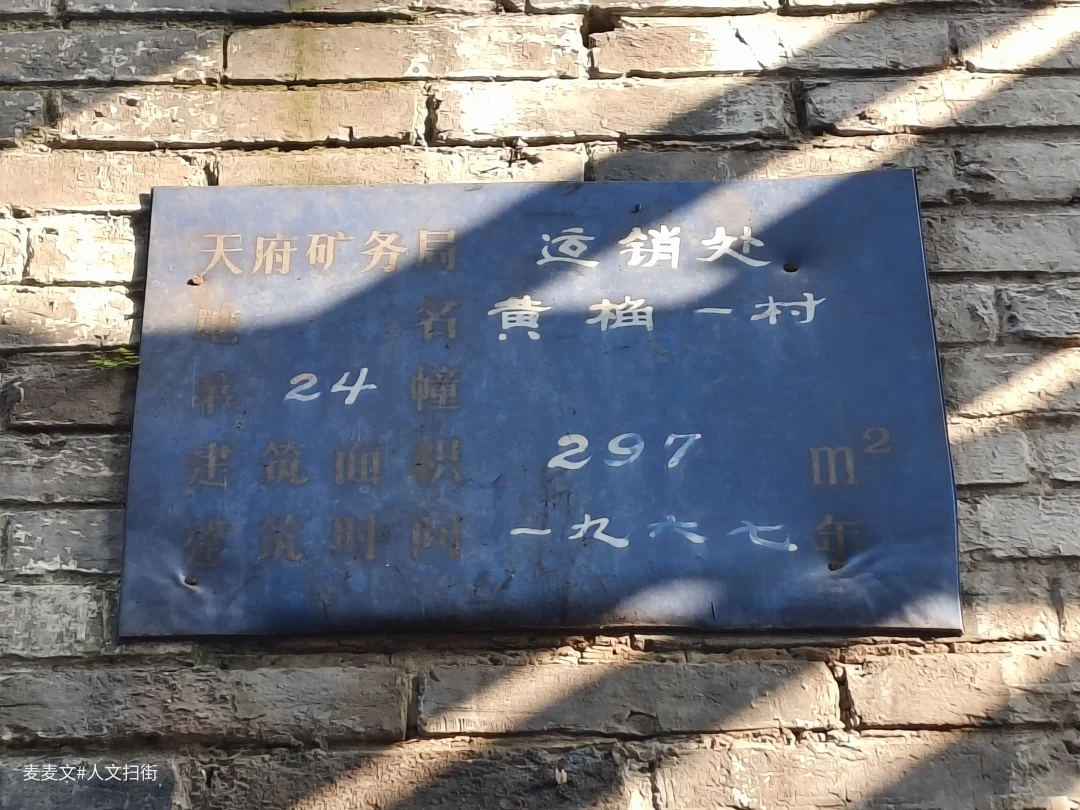 天府矿务局 运销处
地 名 黄桷一村
第 24 幢
建筑面积 297 m²
建筑时间 一九六七年
麦麦文#人文扫街